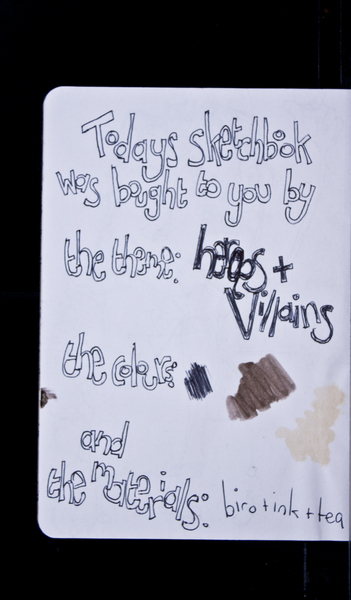 Todays sketchbook
was bought to you by
the theme: heroes +
Villains
the colours:
and
the materials: biro + ink + tea